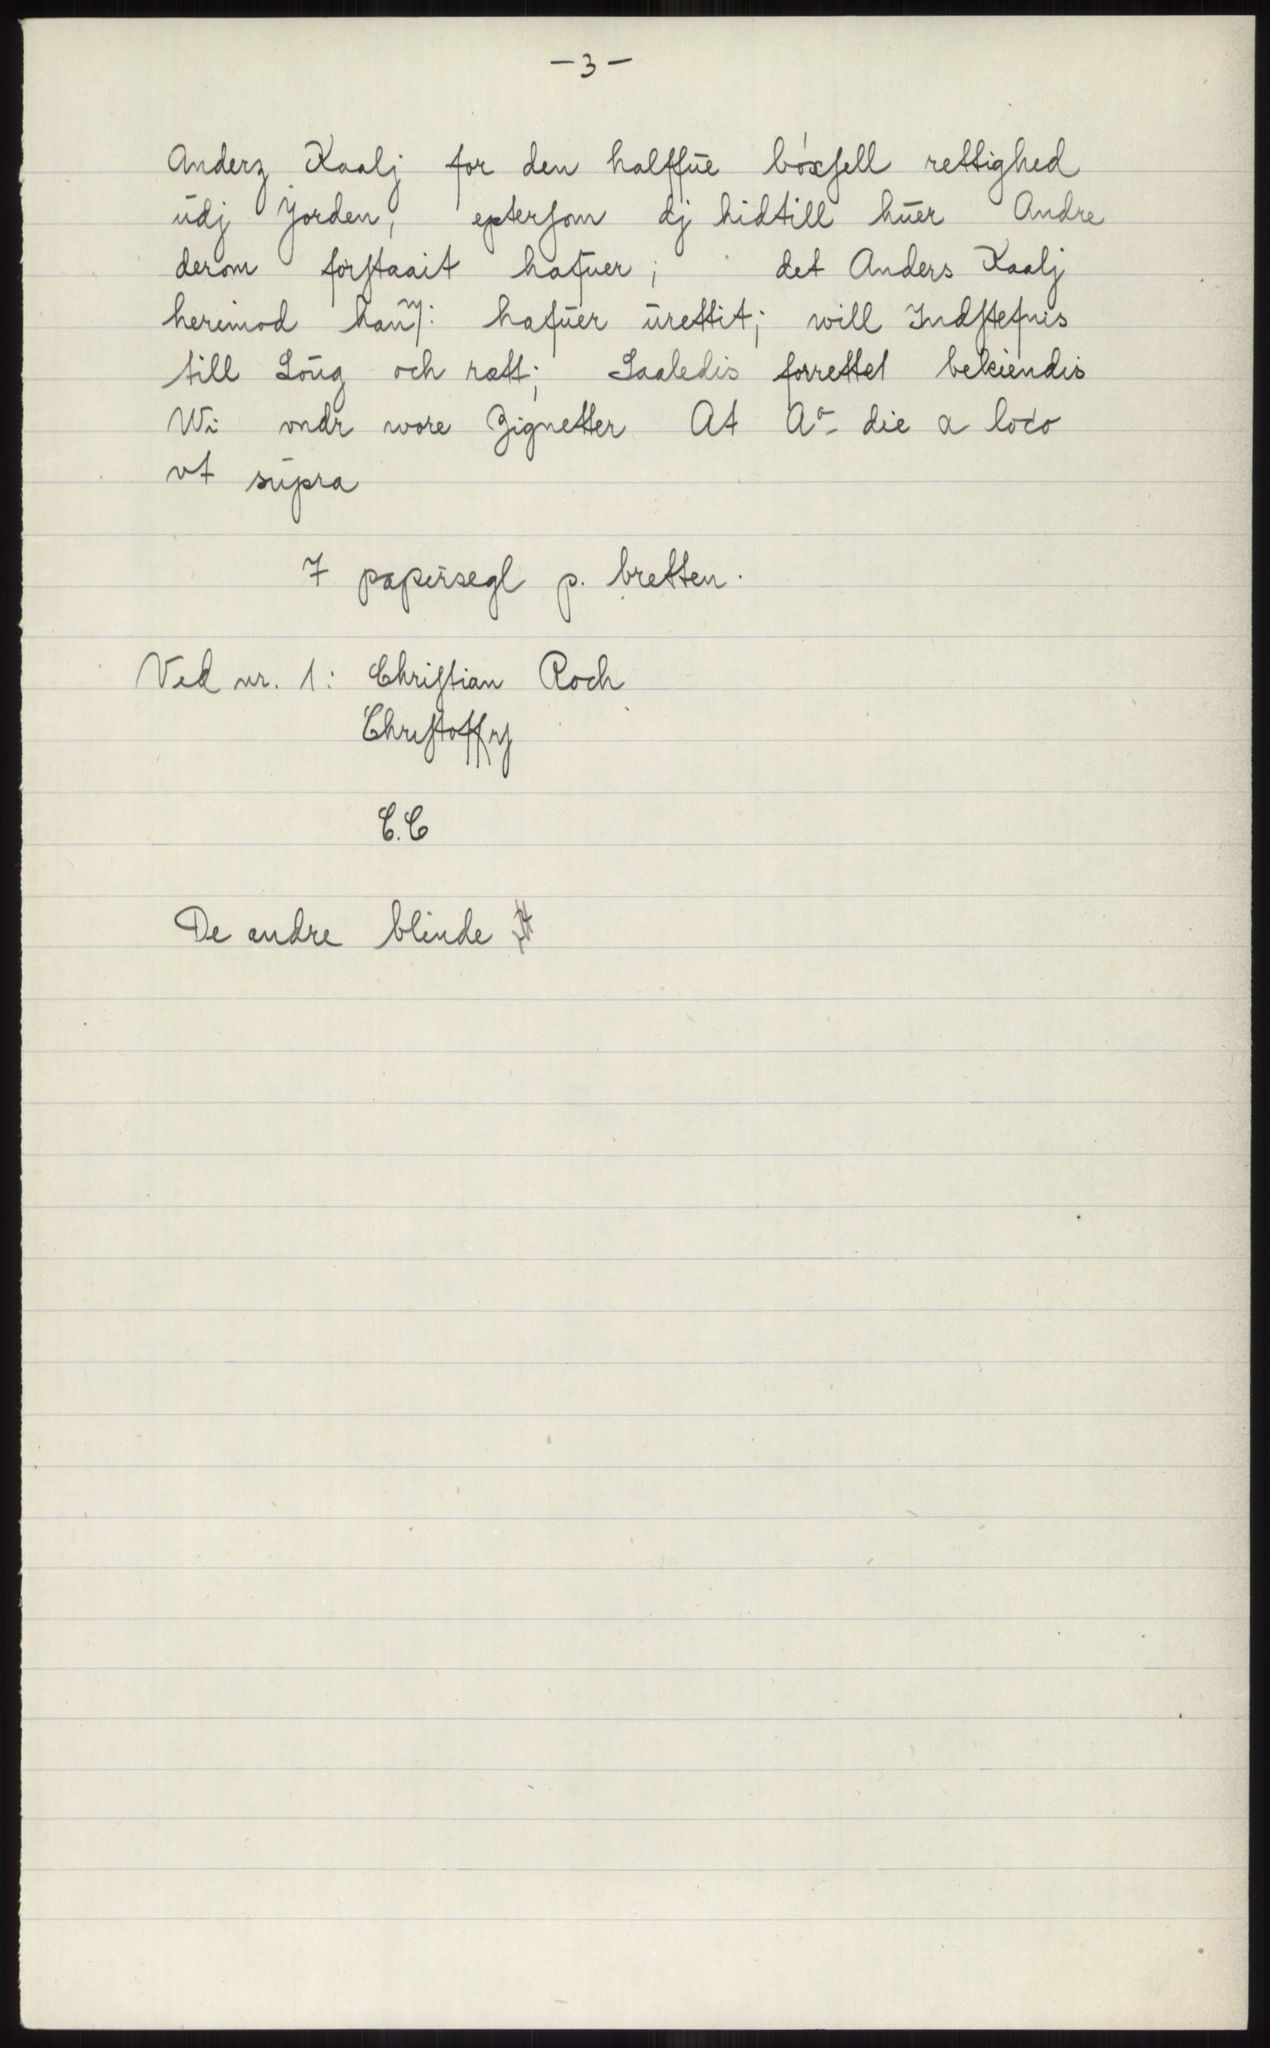 - 3 -
Anderz Kaalj for den halffūe bóxſell rettighed
ūdj Jorden, epterſom dj hidtill hūer Andre
derom forſtaait hafuer; det Anders Kaalj
herimod hafūer ūrettit; will Indſtefnis
till Loūg och rætt; Saaledis forrettet bekiendis
Wi vndr wore Zignetter At Aº die a loco
vt sūpra
7 papirsegl p. bretten.
Ved nr. 1: Chriſtian Roch
C.C
De andre blinde